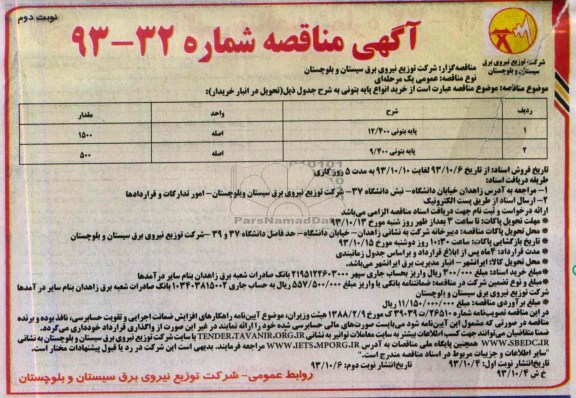 نوبت دوم
آگهی مناقصه شماره ۳۲-۹۳
شرکت توزیع نیروی برق
سیستان و بلوچستان
مناقصه‌گزار: شرکت توزیع نیروی برق سیستان و بلوچستان
نوع مناقصه: عمومی یک مرحله‌ای
موضوع مناقصه: موضوع مناقصه عبارت است از خرید انواع پایه بتونی به شرح جدول ذیل(تحویل در انبار خریدار):
ردیف شرح واحد مقدار
۱ پایه بتونی ۱۲/۴۰۰ اصله ۱۵۰۰
۲ پایه بتونی ۹/۴۰۰ اصله ۵۰۰
تاریخ فروش اسناد: از تاریخ ۹۳/۱۰/۶ لغایت ۹۳/۱۰/۱۰ به مدت ۵ روز کاری
طریقه دریافت اسناد:
۱- مراجعه به آدرس زاهدان خیابان دانشگاه- نبش دانشگاه ۳۷- شرکت توزیع نیروی برق سیستان وبلوچستان- امور تدارکات و قراردادها
۲- ارسال اسناد از طریق پست الکترونیک
ارائه درخواست و ثبت نام جهت دریافت اسناد مناقصه الزامی می‌باشد
* مهلت تحویل پاکات: تا ساعت ۳ بعداز ظهر روز شنبه مورخ ۹۳/۱۰/۱۳
* محل تحویل پاکات مناقصه: دبیرخانه شرکت به نشانی زاهدان- خیابان دانشگاه- حد فاصل دانشگاه ۳۷ و ۳۹ -شرکت توزیع نیروی برق سیستان و بلوچستان
* تاریخ بازگشایی پاکات: ساعت ۱۰:۳۰ روز دوشنبه مورخ ۹۳/۱۰/۱۵
* مدت قرارداد: ۴ماه پس از ابلاغ قرارداد و براساس جدول زمانبندی
* محل تحویل کالا: ایرانشهر - انبار مدیریت برق ایرانشهر می‌باشد.
*مبلغ خرید اسناد: مبلغ ۳۰۰/۰۰۰ ریال واریز بحساب جاری سپهر ۲۱۹۵۱۲۲۶۰۳۰۰۰ بانک صادرات شعبه برق زاهدان بنام سایر درآمدها
*مبلغ و نوع تضمین شرکت در مناقصه: ضمانتنامه بانکی یا واریز مبلغ ۵۵۷/۵۰۰/۰۰۰ ریال به حساب جاری ۱۰۳۴۰۳۸۱۵۰۰۲ بانک صادرات شعبه برق زاهدان بنام سایر در آمدها
شرکت توزیع نیروی برق سیستان و بلوچستان
*مبلغ برآوردی مناقصه: مبلغ ۱۱/۱۵۰/۰۰۰/۰۰۰ ریال می‌باشد
در این مناقصه تصویب‌نامه شماره ۲۶۵۱۰/ت۳۹۰۳۹ ک مورخ ۱۳۸۸/۲/۹ هیئت وزیران، موضوع آیین‌نامه راهکارهای افزایش ضمانت اجرایی و تقویت حسابرسی، نافذ بوده و برنده
مناقصه در صورتی که مشمول این آیین‌نامه شود می‌بایست صورت‌های مالی حسابرسی شده خود را ارائه نمایند در غیر این صورت از واگذاری قرارداد خودداری می‌گردد.
ضمنا متقاضیان می‌توانند جهت کسب اطلاعات بیشتر به سایت معاملات توانیر به نشانی TENDER.TAVANIR.ORG.IR یا سایت شرکت توزیع نیروی برق سیستان و بلوچستان به نشانی
WWW.SBEDC.IR همچنین پایگاه ملی مناقصات به آدرس WWW.IETS.MPORG.IR مراجعه فرمایند. بدیهی است این شرکت در رد یا قبول پیشنهادات مختار است.
"سایر اطلاعات و جزییات مربوط در اسناد مناقصه مندرج است."
تاریخ انتشار نوبت اول: ۹۳/۱۰/۴ تاریخ انتشار نوبت دوم: ۹۳/۱۰/۶
خ ش ۹۳/۱۰/۴
روابط عمومی- شرکت توزیع نیروی برق سیستان و بلوچستان
ParsNamadData